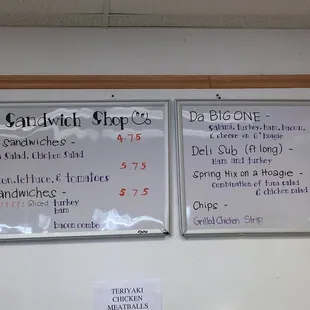 Sandwich Shop
Sandwiches - 4.75
Salad, Chicken Salad
5.75
lettuce, & tomatoes
Sandwiches - 5.75
Sliced turkey
ham
bacon combo
Da BIG ONE -
Salami, turkey, ham, bacon,
& cheese in 6" hoagie
Deli Sub (ft long) -
Ham and turkey
Spring Mix on a Hoagie -
Combination of tuna salad
& chicken salad
Chips -
Grilled Chicken Strip
TERIYAKI
CHICKEN
MEATBALLS